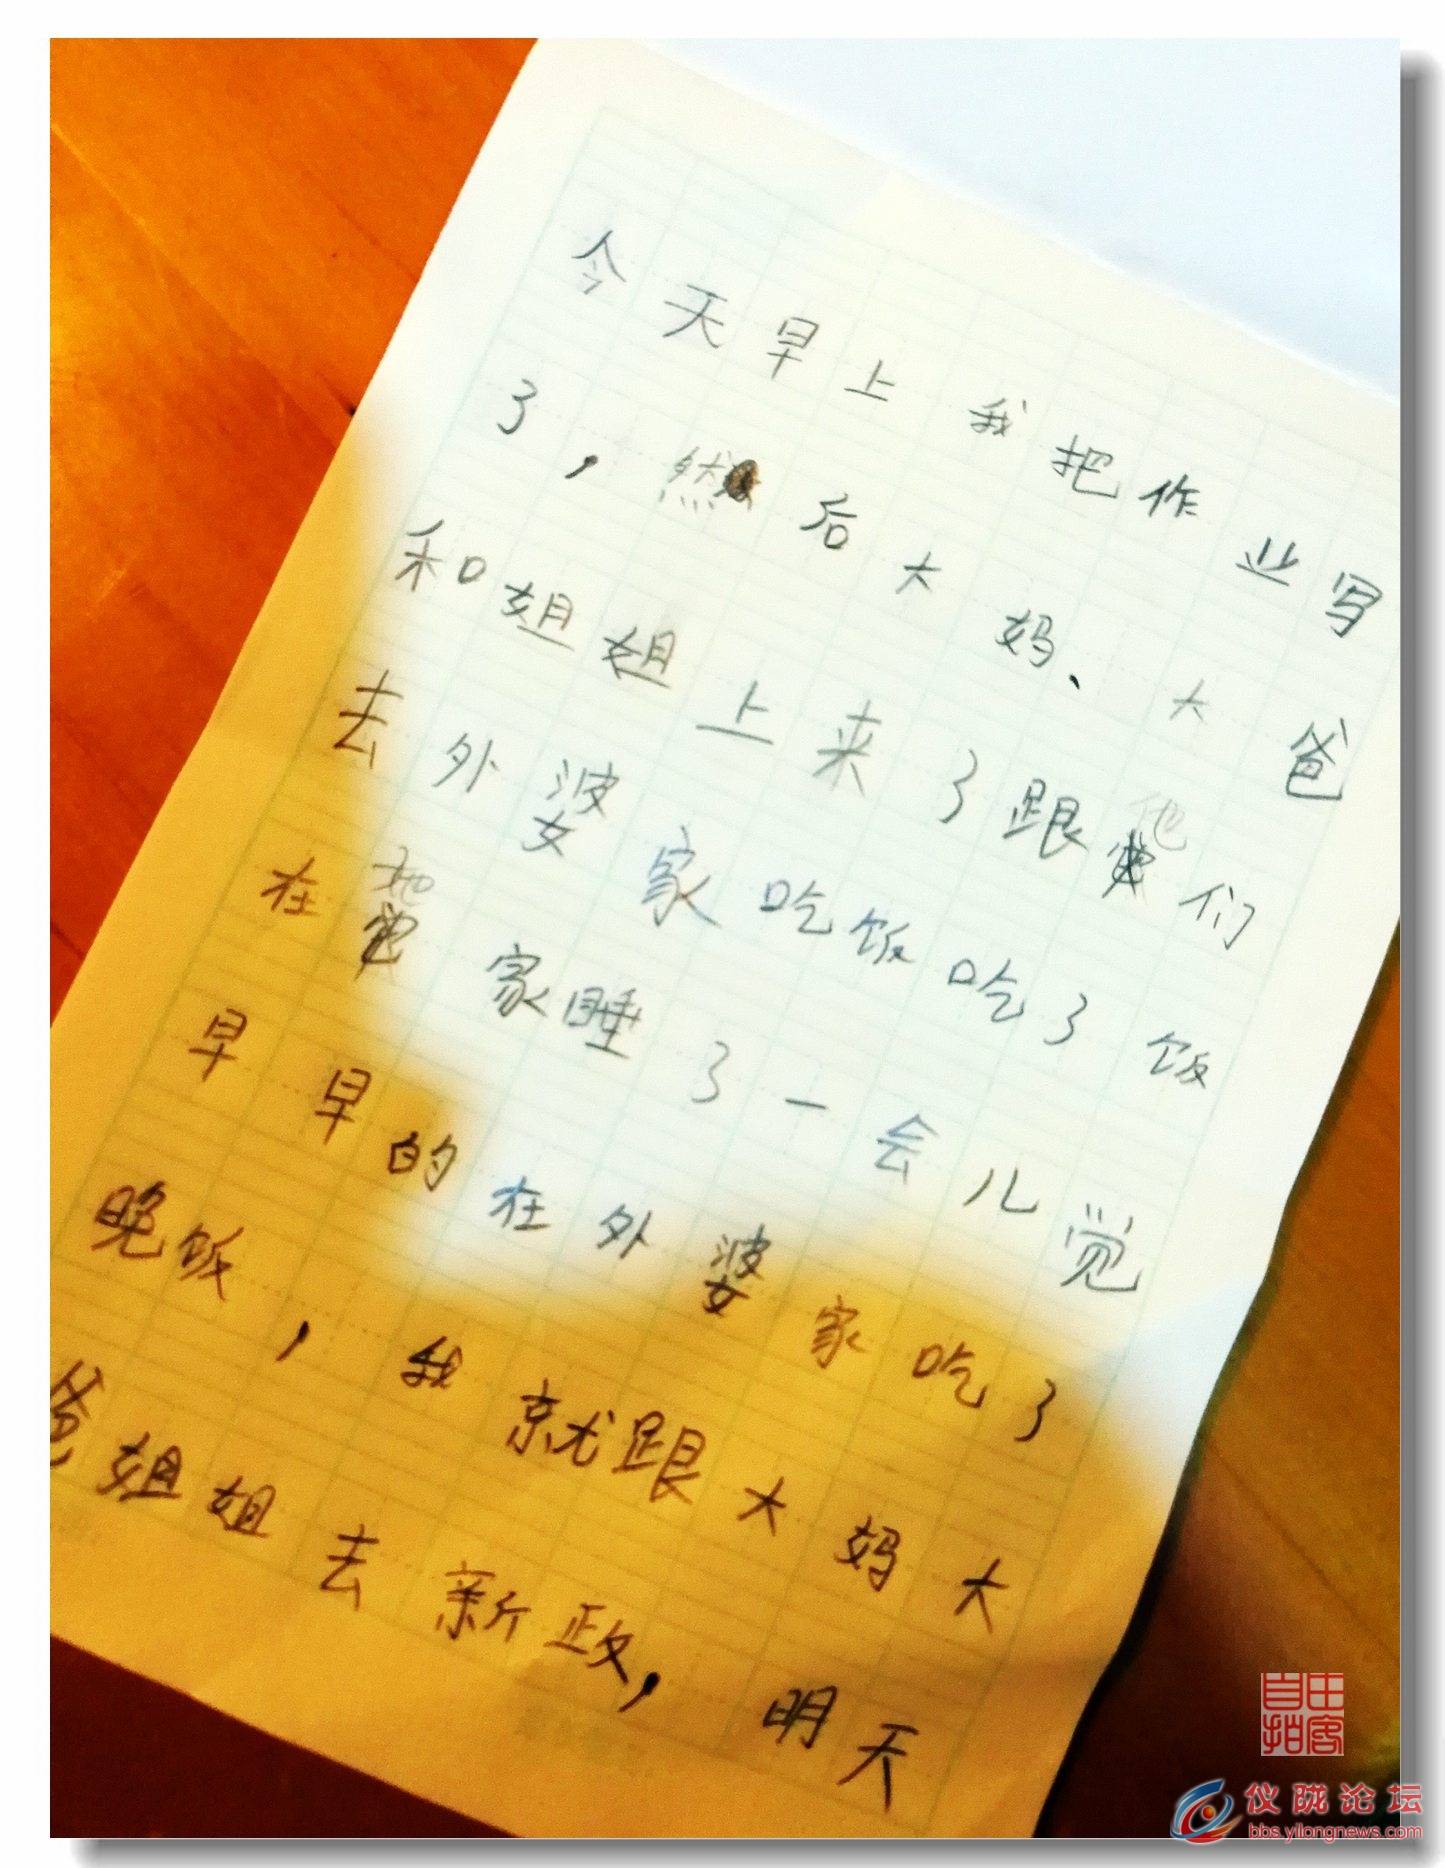 今天早上我把作业写
了，然后大妈、大爸
和姐姐上来了跟他们
去外婆家吃饭吃了饭
在她家睡了一会儿觉
早早的在外婆家吃了
晚饭，我就跟大妈大
爸姐姐去新政，明天
自由拍客
仪陇论坛
bbs.yilongnews.com